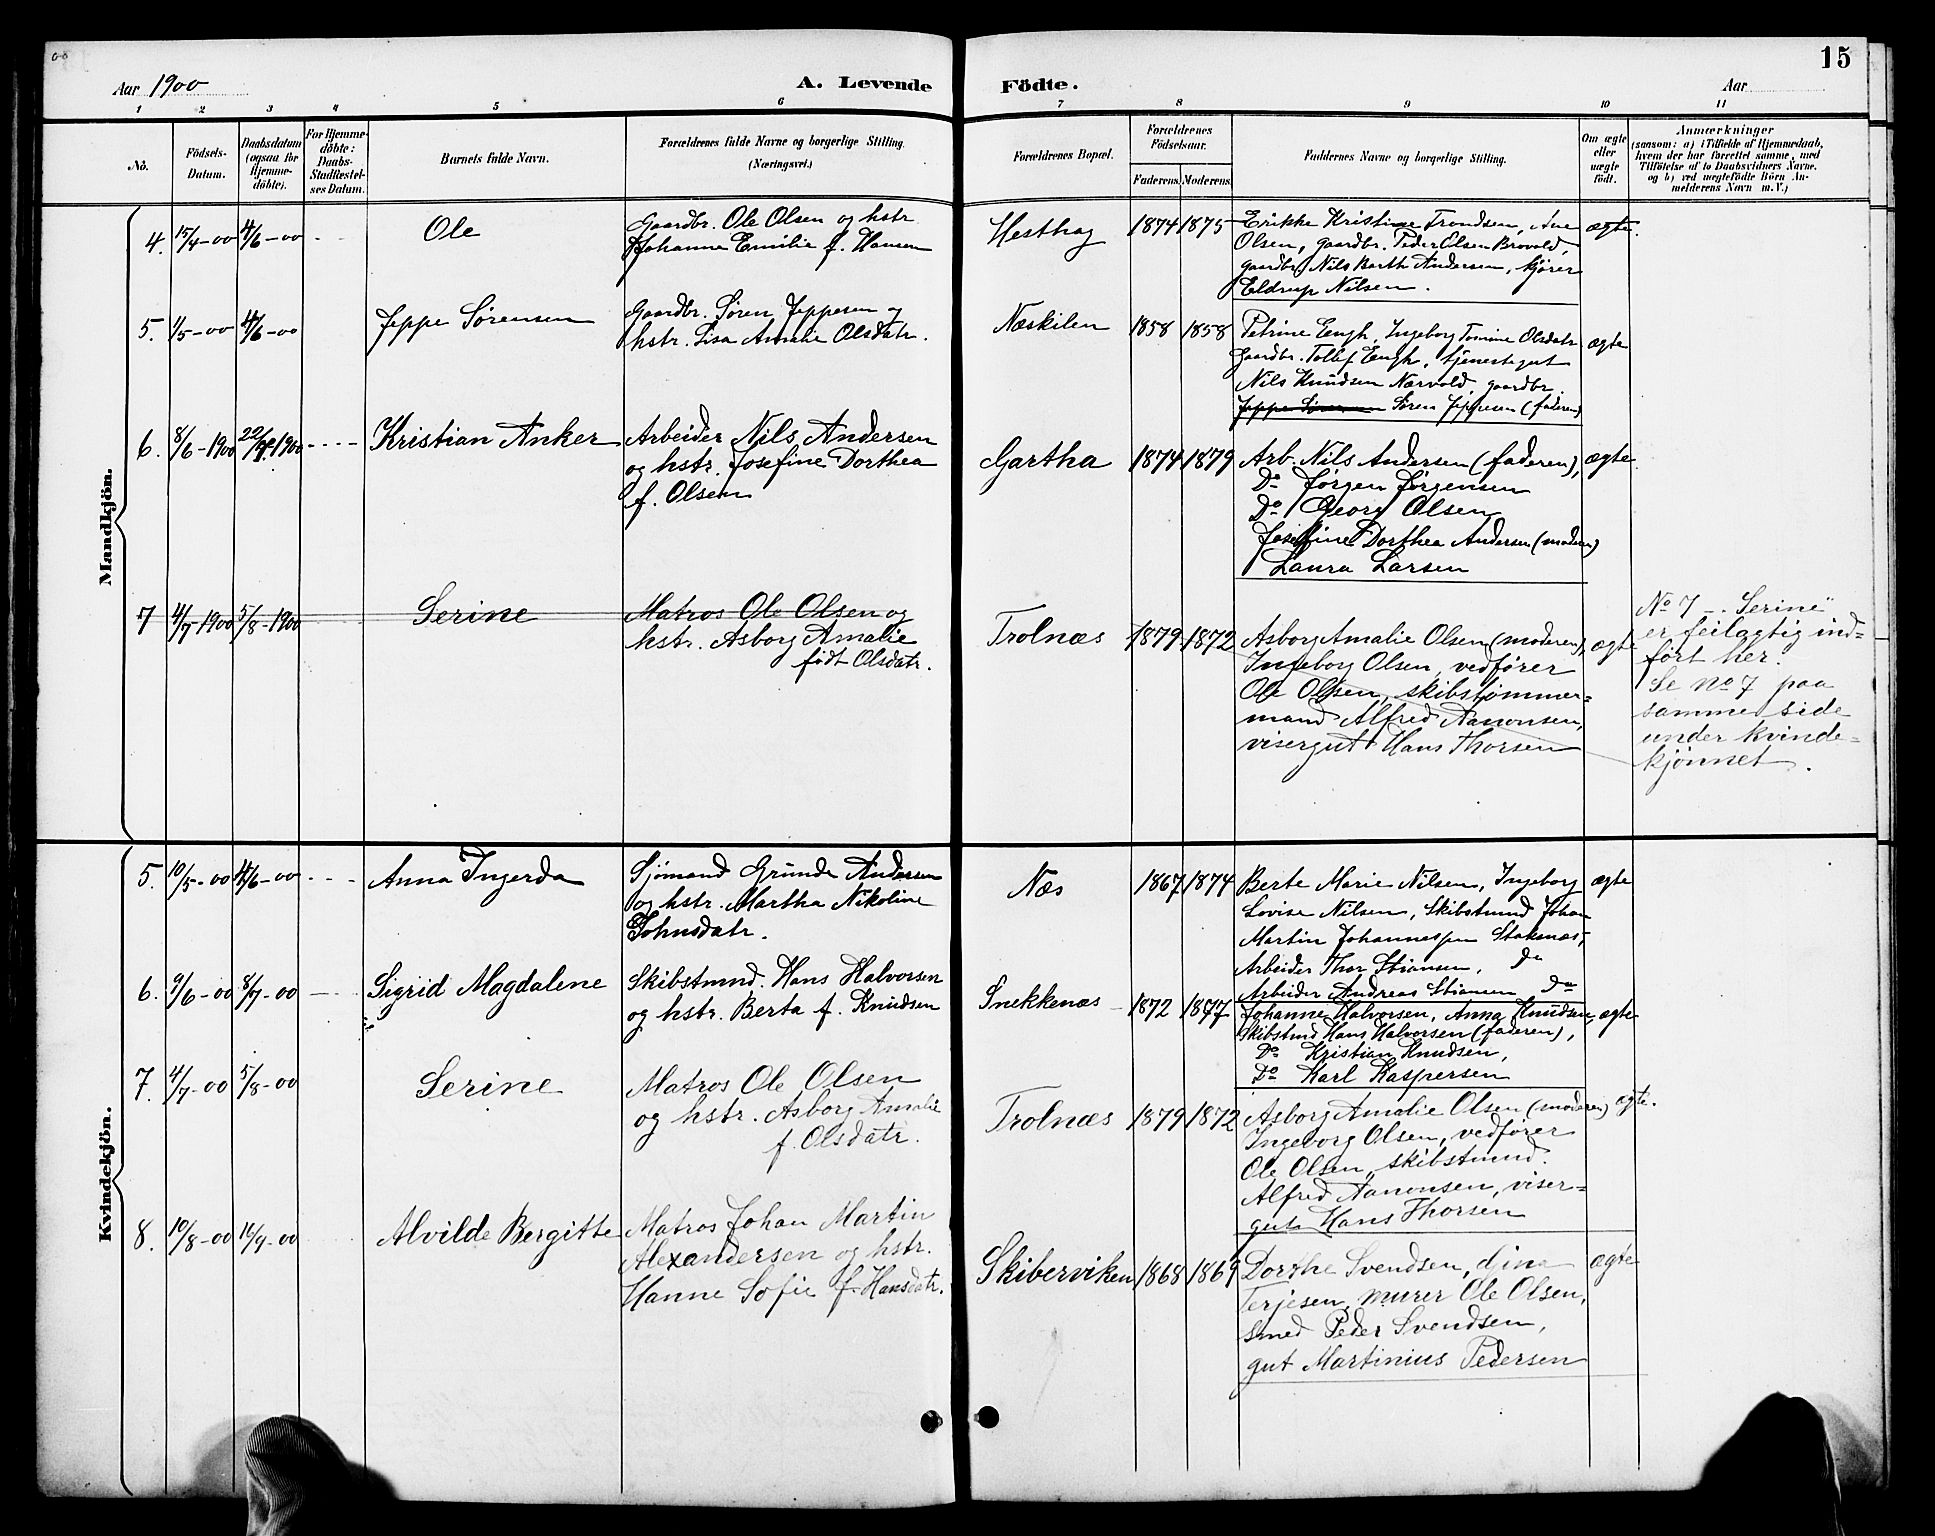 15
Aar 1900
A. Levende Födte.
Aar
1 2 3 4 5 6 7 8 9 10 11
No.
Födsels-
Datum.
Daabsdatum
(ogsaa for
Hjemme-
döbte).
For Hjemme-
döbte:
Daabs-
Stadfæstel-
ses Datum.
Barnets fulde Navn.
Forældrenes fulde Navne og borgerlige Stilling.
(Næringsvei.)
Forældrenes Bopæl.
Forældrenes
Födselsaar.
Faderens. Moderens.
Faddernes Navne og borgerlige Stilling.
Om ægte
eller
uægte
født.
Anmærkninger
(saasom: a) i Tilfælde af Hjemmedaab,
hvem der har forrettet samme, med
Tilföielse af to Daabsvidners Navne,
og b) ved uægtefödte Börn An-
melderens Navn m. V.)
Mandkjön.
4. 15/4-00 4/6-00 Ole
Gaardbr. Ole Olsen og hstr
Johanne Emilie f. Hansen
Hesthag 1874 1875
Erikke Kristine Trondsen,
Olsen, gaardbr. Peder Olsen Brovold,
gaardbr. Nils Barth Andersen, kjører
Eldrup Nilsen.
ægte.
5. 1/5-00 4/6-00 Jeppe Sørensen
Gaardbr. Søren Jeppesen og
hstr. Lisa Amalie Olsdatr.
Næskilen 1858 1858
Petrine Eengh, Ingeborg Tomine Olsdatr
Gaardbr. Tollef Eengh, tjenestegut
Nils Knudsen Nærvold, gaardbr.
Jeppe Sørensen Søren Jeppesen (faderen)
ægte
6. 8/6-1900 22/7-1900 Kristian Anker
Arbeider Nils Andersen
og hstr. Josefine Dorthea
f. Olsen
Gartha 1874 1879
Arb. Nils Andersen (faderen),
Do Jørgen Jørgensen
Do Georg Olsen
Josefine Dorthea Andersen (moderen)
Laura Larsen
ægte
7 4/7-1900 5/8-1900 Serine
Matros Ole Olsen og
hstr. Asborg Amalie
født Olsdatr.
Trolnæs 1879 1872
Asborg Amalie Olsen (moderen),
Ingeborg Olsen, vedfører
Ole Olsen, skibstømmer=
mand Alfred Aanonsen,
visergut Hans Thorsen
ægte
No 7 - "Serine"
er feilagtig ind=
ført her.
Se No 7 paa
samme side
under kvinde=
kjønnet.
Kvindekjön.
5. 10/5-00 4/6-00 Anna Ingerda
Sjömand Grunde Andersen
og hstr. Martha Nikoline
Johnsdatr.
Næs 1867 1874
Berte Marie Nilsen, Ingeborg
Lovise Nilsen, Skibstmnd Johan
Martin Johannessen Stoknæs,
Arbeider Thor Stiansen, Do
Arbeider Andreas Stiansen Do
ægte
6. 9/6-00 8/7-00 Sigrid Magdalene
Skibstmnd. Hans Halvorsen
og hstr. Berta f. Knudsen
Snekkenæs 1872 1877
Johanne Halvorsen, Anna Knudsen,
Skibstmd Hans Halvorsen (faderen),
Do Kristian Knudsen,
Do Karl Kaspersen
ægte
7. 4/7-00 5/8-00 Serine
Matros Ole Olsen
og hstr. Asborg Amalie
f. Olsdatr.
Trolnæs 1879 1872
Asborg Amalie Olsen (moderen)
Ingeborg Olsen, vedfører
Ole Olsen, skibstmnd.
Alfred Aanonsen, viser=
gut Hans Thorsen
ægte.
8. 10/8-00 16/9-00 Alvilde Bergitte
Matros Johan Martin
Alexandersen og hstr.
Hanne Sofie f. Hansdatr.
Skiberviken 1868 1869
Dorthe Svendsen, Dina
Terjesen, murer Ole Olsen,
smed Peder Svendsen,
gut Martinius Pedersen
ægte